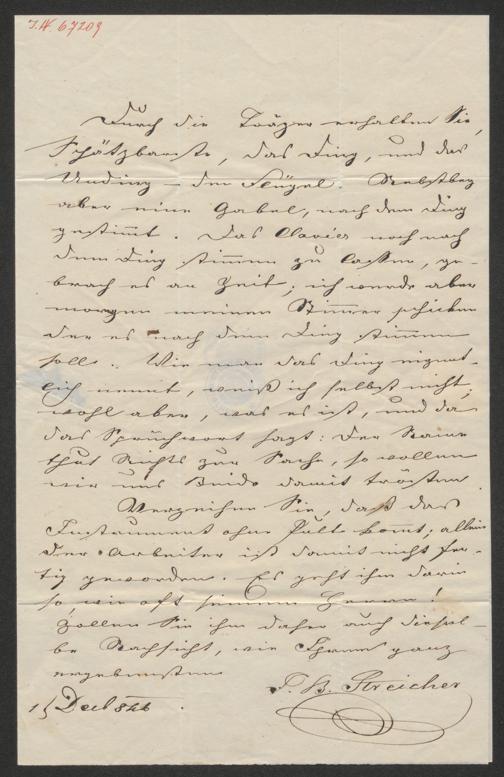 I.N. 67209
Durch die Träger erhalten Sie,
Schätzbarste, das Ding, und das
Unding – den Flügel. Nebstbey
aber eine Gabel, nach dem Ding
gestim̅t. Das Clavier noch nach
dem Ding stim̅en zu lassen, ge-
brach es an Zeit; ich werde aber
morgen meinen Stim̅er schicken
der es nach dem Ding stim̅en
soll. Wie man das Ding eigent-
lich nennt, weiß ich selbst nicht,
wohl aber, was es ist, und da
das Sprüchwort sagt: der Name
thut Nichts zur Sache, so wollen
wir uns Beide damit trösten.
Verzeihen Sie, daß das
Instrument ohne Pult kom̅t; allein
der Arbeiter ist damit nicht fer-
tig geworden. Es geht ihm darin
so, wie oft seinem Herrn!
Zollen Sie ihm daher auch diesel-
be Nachsicht, wie Ihrem ganz
ergebensten
J. B. Streicher